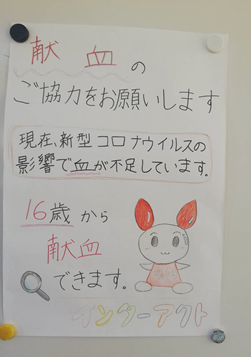 献血の
ご協力をお願いします
現在、新型コロナウイルスの
影響で血が不足しています。
16歳から
献血
できます。
インターアクト